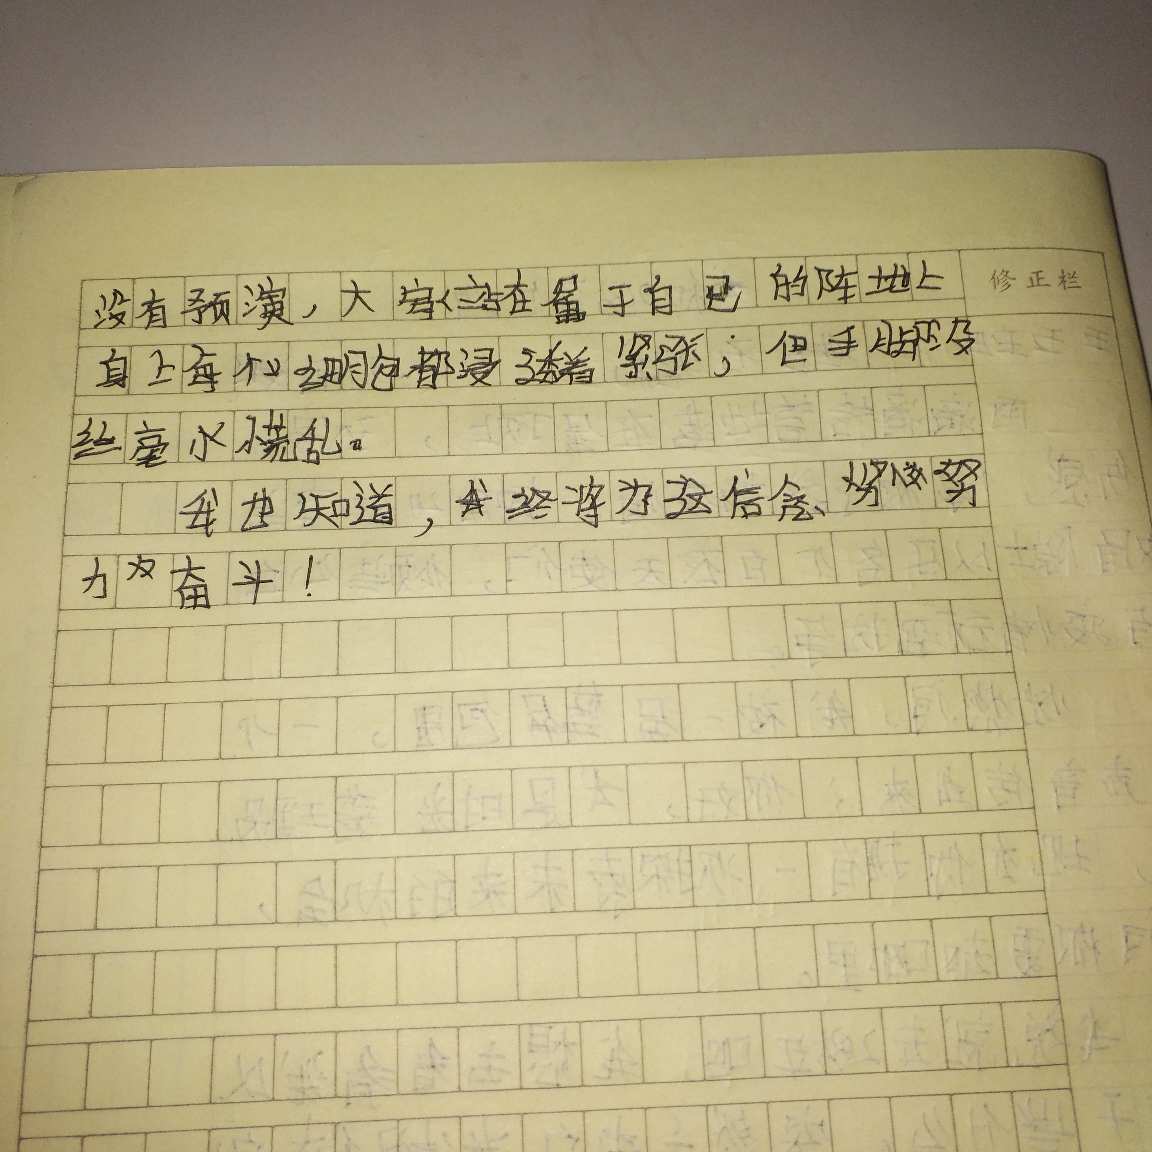 修正栏
没有预演，大家站在属于自己的阵地上
身上每个细胞都浸透着紧张；但手脚没
丝毫慌乱。
我也知道，我终将为这信念、努力
奋斗！